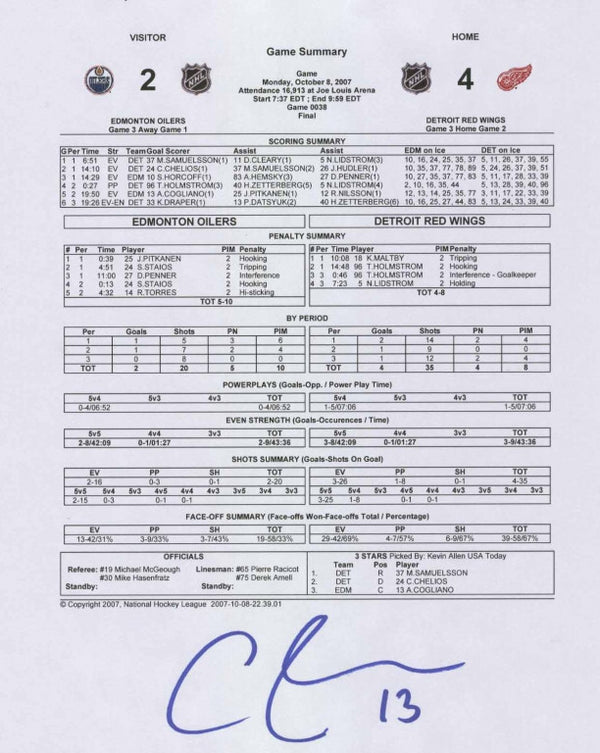 VISITOR HOME
Game Summary
2 4
Game
Monday, October 8, 2007
Attendance 16,913 at Joe Louis Arena
Start 7:37 EDT ; End 9:59 EDT
Game 0038
Final
EDMONTON OILERS DETROIT RED WINGS
Game 3 Away Game 1 Game 3 Home Game 2
SCORING SUMMARY
G Per Time Str Team Goal Scorer Assist Assist EDM on Ice DET on Ice
1 1 6:51 EV DET 37 M.SAMUELSSON(1) 11 D.CLEARY(1) 5 N.LIDSTROM(3) 10, 16, 24, 25, 35, 37 5, 11, 26, 37, 39, 55
2 1 14:10 EV DET 24 C.CHELIOS(1) 37 M.SAMUELSSON(2) 26 J.HUDLER(1) 10, 35, 37, 77, 78, 89 5, 24, 26, 37, 39, 51
3 1 14:29 EV EDM 10 S.HORCOFF(1) 83 A.HEMSKY(3) 27 D.PENNER(1) 10, 27, 35, 37, 77, 83 5, 11, 17, 28, 33, 39
4 2 0:27 PP DET 96 T.HOLMSTROM(3) 40 H.ZETTERBERG(5) 5 N.LIDSTROM(4) 2, 10, 16, 35, 44 5, 13, 28, 39, 40, 96
5 2 19:50 EV EDM 13 A.COGLIANO(1) 25 J.PITKANEN(1) 12 R.NILSSON(1) 12, 13, 14, 25, 35, 77 3, 11, 17, 22, 33, 39
6 3 19:26 EV-EN DET 33 K.DRAPER(1) 13 P.DATSYUK(2) 40 H.ZETTERBERG(6) 10, 16, 25, 27, 44, 83 5, 13, 24, 33, 39, 40
EDMONTON OILERS DETROIT RED WINGS
PENALTY SUMMARY
# Per Time Player PIM Penalty # Per Time Player PIM Penalty
1 1 0:39 25 J.PITKANEN 2 Hooking 1 1 10:08 18 K.MALTBY 2 Tripping
2 1 4:51 24 S.STAIOS 2 Tripping 2 1 14:48 96 T.HOLMSTROM 2 Hooking
3 1 11:00 27 D.PENNER 2 Interference 3 3 0:46 96 T.HOLMSTROM 2 Interference - Goalkeeper
4 2 0:13 24 S.STAIOS 2 Hooking 4 3 7:23 5 N.LIDSTROM 2 Holding
5 2 4:32 14 R.TORRES 2 Hi-sticking
TOT 5-10 TOT 4-8
BY PERIOD
Per Goals Shots PN PIM Per Goals Shots PN PIM
1 1 5 3 6 1 2 14 2 4
2 1 7 2 4 2 1 9 0 0
3 0 8 0 0 3 1 12 2 4
TOT 2 20 5 10 TOT 4 35 4 8
POWERPLAYS (Goals-Opp. / Power Play Time)
5v4 5v3 4v3 TOT 5v4 5v3 4v3 TOT
0-4/06:52 0-4/06:52 1-5/07:06 1-5/07:06
EVEN STRENGTH (Goals-Occurences / Time)
5v5 4v4 3v3 TOT 5v5 4v4 3v3 TOT
2-8/42:09 0-1/01:27 2-9/43:36 3-8/42:09 0-1/01:27 3-9/43:36
SHOTS SUMMARY (Goals-Shots On Goal)
EV PP SH TOT EV PP SH TOT
2-16 0-3 0-1 2-20 3-26 1-8 0-1 4-35
5v5 5v4 5v3 4v5 4v4 4v3 3v5 3v4 3v3 5v5 5v4 5v3 4v5 4v4 4v3 3v5 3v4 3v3
2-15 0-3 0-1 0-1 3-25 1-8 0-1 0-1
FACE-OFF SUMMARY (Face-offs Won-Face-offs Total / Percentage)
EV PP SH TOT EV PP SH TOT
13-42/31% 3-9/33% 3-7/43% 19-58/33% 29-42/69% 4-7/57% 6-9/67% 39-58/67%
OFFICIALS 3 STARS Picked By: Kevin Allen USA Today
Team Pos Player
Referee: #19 Michael McGeough Linesman: #65 Pierre Racicot 1. DET R 37 M.SAMUELSSON
#30 Mike Hasenfratz #75 Derek Amell 2. DET D 24 C.CHELIOS
Standby: Standby: 3. EDM C 13 A.COGLIANO
© Copyright 2007, National Hockey League 2007-10-08-22.39.01
13